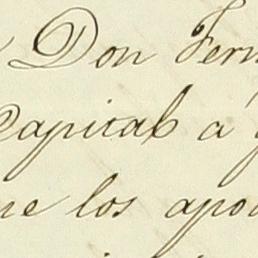 Don Fern
Capital á
ue los apod